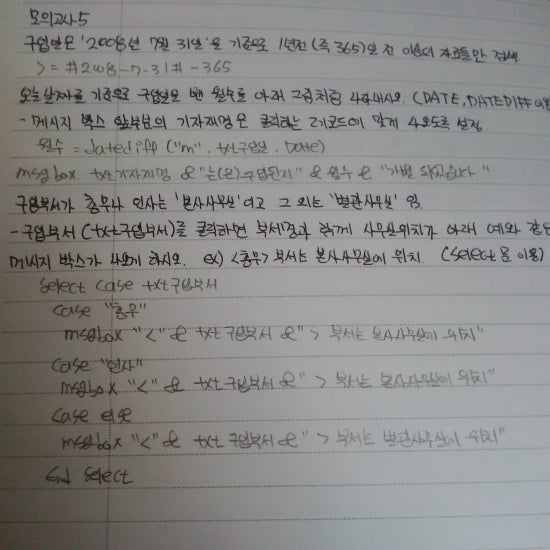 모의고사5
구입일은 '2008년 7월 31일'을 기준으로 1년전 (즉 365)일 전 이상의 자료들만 검색
>= #2008-7-31# -365
오늘날짜를 기준으로 구입일을 뺀 월수로 아래 그림처럼 나타내시오. (DATE, DATEDIFF 이용
- 메시지 박스 앞부분의 기자재명은 클릭하는 레코드에 맞게 나오도록 설정.
월수 = datediff ("m", txt구입일, Date)
msgbox txt기자재명 & "는(은) 구입한지" & 월수 & "개월 되었습니다."
구입부서가 총무나 인사는 '본사사무실'이고 그 외는 '별관사무실' 임
- 구입부서(txt구입부서)를 클릭하면 부서명과 함께 사무실위치가 아래 예와 같은
메시지 박스가 나오게 하시오. ex) <총무> 부서는 본사사무실에 위치. (Select문 이용)
select case txt구입부서
case "총무"
msgbox "<" & txt구입부서 & "> 부서는 본사사무실에 위치"
case "인사"
msgbox "<" & txt구입부서 & "> 부서는 본사사무실에 위치"
case else
msgbox "<" & txt구입부서 & "> 부서는 별관사무실에 위치"
End select